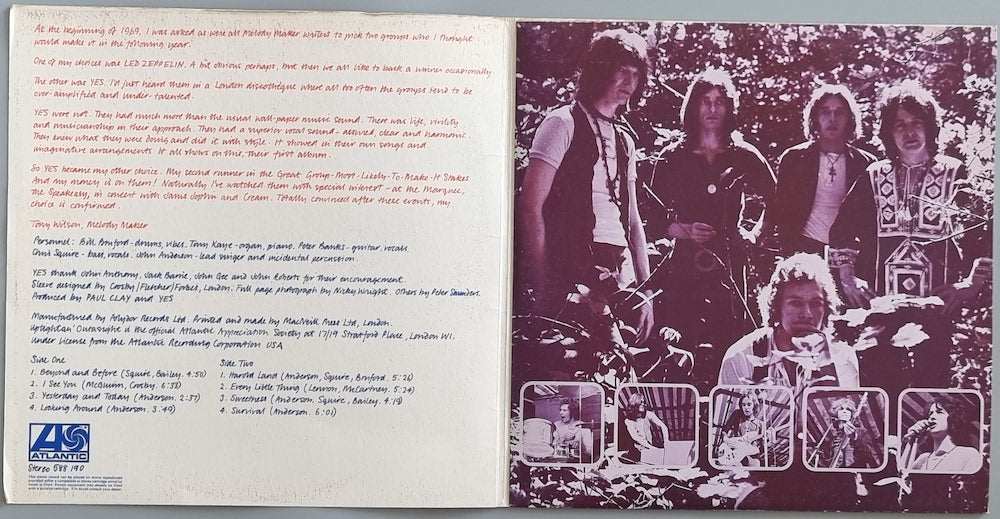 At the beginning of 1969, I was asked as were all Melody Maker writers to pick two groups who I thought
would make it in the following year.
One of my choices was LED ZEPPELIN. A bit obvious perhaps, but then we all like to back a winner occasionally.
The other was YES. I'd just heard them in a London discotheque where all too often the groups tend to be
over-amplified and under-talented.
YES were not. They had much more than the usual wall-paper music sound. There was life, virility
and musicianship in their approach. They had a superior vocal sound - assured, clear and harmonic.
They knew what they were doing and did it with style. It showed in their own songs and
imaginative arrangements. It all shows on this, their first album.
So YES became my other choice. My second runner in the Great Group-Most-Likely-To-Make-It Stakes
And my money is on them! Naturally I've watched them with special interest - at the Marquee,
the Speakeasy, in concert with Janis Joplin and Cream. Totally convinced after these events, my
choice is confirmed.
Tony Wilson, Melody Maker
Personnel: Bill Bruford - drums, vibes. Tony Kaye - organ, piano. Peter Banks - guitar, vocals.
Chris Squire - bass, vocals. John Anderson - lead singer and incidental percussion.
YES thank John Anthony, Jack Barrie, John Gee and John Roberts for their encouragement.
Sleeve designed by Crosby/Fletcher/Forbes, London. Full page photograph by Nicky Wright. Others by Peter Saunders.
Produced by PAUL CLAY and YES
Manufactured by Polydor Records Ltd. Printed and made by MacNeill Press Ltd, London.
'Uptight an' Outasight' is the official Atlantic Appreciation Society at 17/19 Stratford Place, London W1.
Under license from the Atlantic Recording Corporation USA
Side One
1. Beyond and Before (Squire, Bailey. 4:50)
2. I See You (McGuinn, Crosby. 6:33)
3. Yesterday and Today (Anderson. 2:37)
4. Looking Around (Anderson. 3:49)
Side Two
1. Harold Land (Anderson, Squire, Bruford. 5:26)
2. Every Little Thing (Lennon, McCartney. 5:24)
3. Sweetness (Anderson, Squire, Bailey. 4:19)
4. Survival (Anderson. 6:01)
ATLANTIC
Stereo 588 190